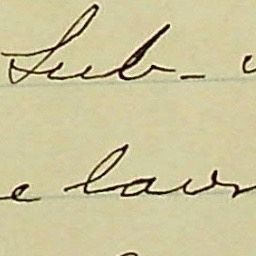 Sub-
e laws